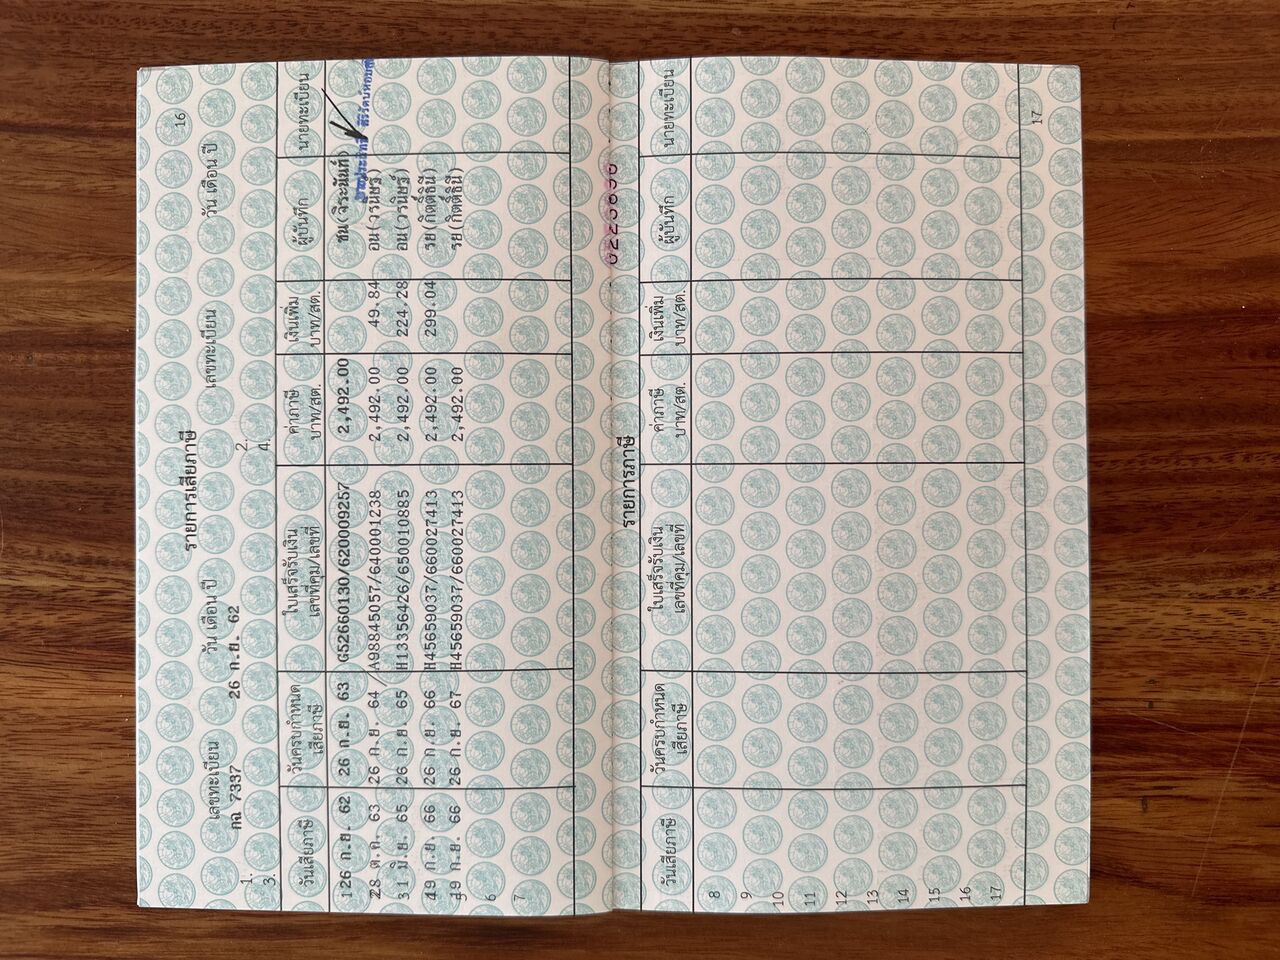 16
รายการเสียภาษี
เลขทะเบียน วัน เดือน ปี เลขทะเบียน วัน เดือน ปี
1. กฉ 7337 26 ก.ย. 62 2.
3. 4.
วันเสียภาษี วันครบกำหนดเสียภาษี ใบเสร็จรับเงิน เลขที่คุม/เลขที่ ค่าภาษี บาท/สต. เงินเพิ่ม บาท/สต. ผู้บันทึก นายทะเบียน
1 26 ก.ย. 62 26 ก.ย. 63 G52660130/620009257 2,492.00 ชน(จิระนันท์)
2 28 ต.ค. 63 26 ก.ย. 64 /A98845057/640001238 2,492.00 49.84 อน(วรนิษฐ์)
3 1 มิ.ย. 65 26 ก.ย. 65 H13356426/650010885 2,492.00 224.28 อน(วรนิษฐ์)
4 9 ก.ย 66 26 ก.ย. 66 H45659037/660027413 2,492.00 299.04 รย(กิตติ์ธินี)
9 ก.ย. 66 26 ก.ย. 67 H45659037/660027413 2,492.00 รย(กิตติ์ธินี)
6
7
17
รายการภาษี
วันเสียภาษี วันครบกำหนดเสียภาษี ใบเสร็จรับเงิน เลขที่คุม/เลขที่ ค่าภาษี บาท/สต. เงินเพิ่ม บาท/สต. ผู้บันทึก นายทะเบียน
8
9
10
11
12
13
14
15
16
17